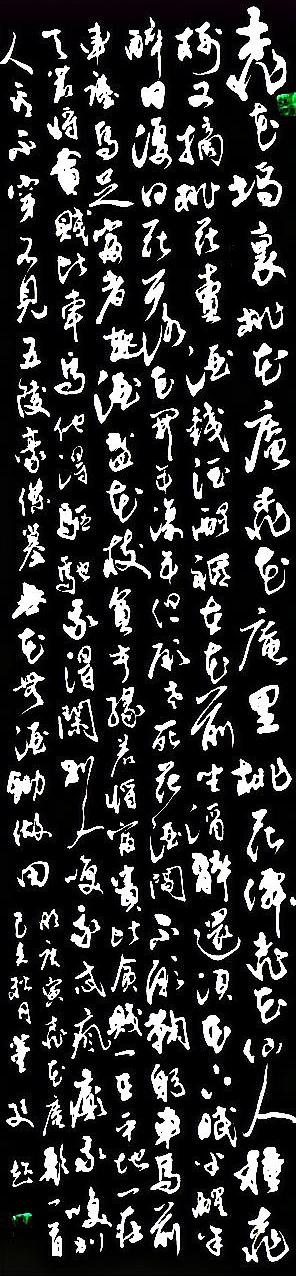 桃花坞裏桃花庵桃花庵里桃花僊桃花仙人種桃
樹又摘桃花賣酒錢酒醒祇在花前坐酒醉還須花下眠半醒半
醉日復日花落花開年復年但願老死花酒間不願鞠躬車馬前
車塵馬足富者趣酒盞花枝貧者緣若將富貴比貧賤一在平地一在
天若將貧賤比車馬他得驅馳我得閑別人笑我忒瘋癲我笑別
人看不穿不見五陵豪傑墓無花無酒鋤做田
明唐寅桃花庵歌一首